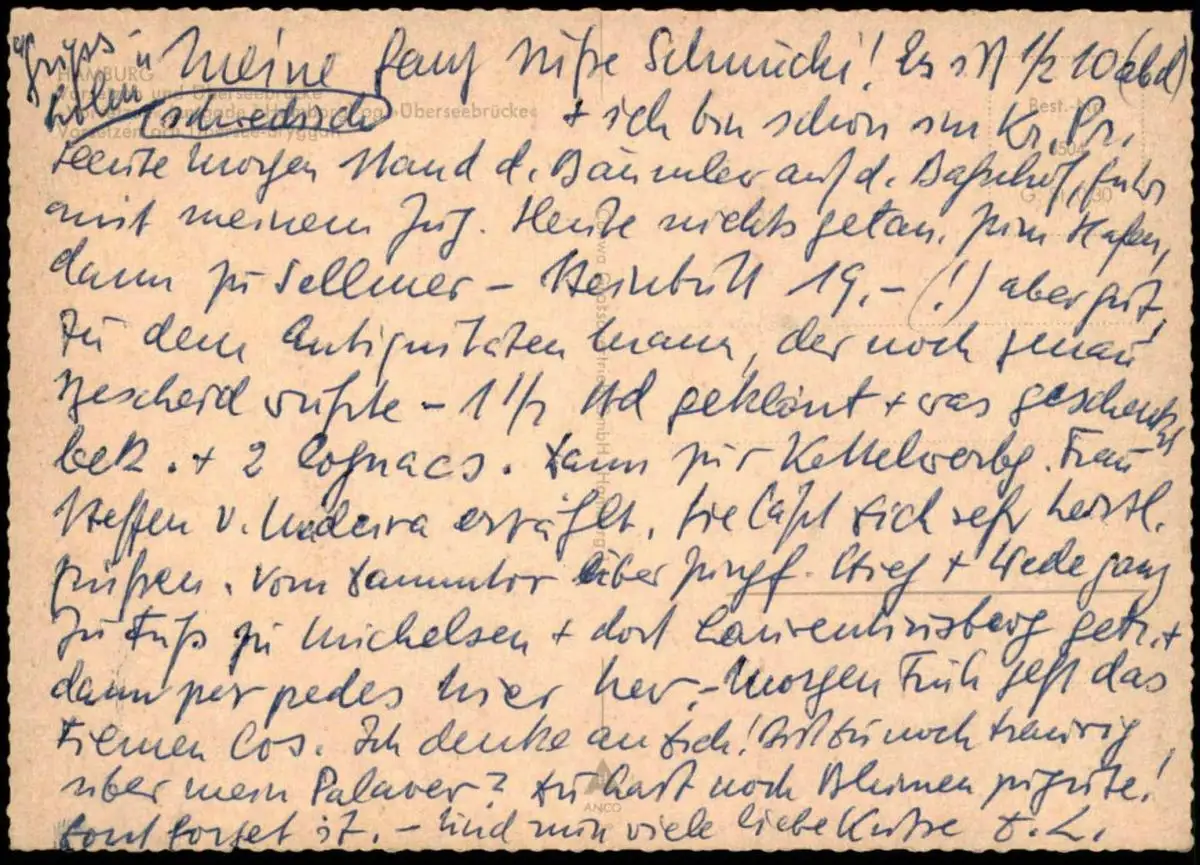 Gruss u
Meine ganz süße Schnucki! Es ist 1/2 10 (abd)
HAMBURG
Vorsetzen und Überseebrücke
»Überseebrücke«
Best.-Nr.
+ ich bin schon im Kr. Pr.
Heute morgen stand d. Bäumler auf d. Bahnhof, fuhr
mit meinem Zug. Heute nichts getan. Zum Hafen,
dann zu Sellmer – Steinbutt 19,– (!) aber gut,
Zu dem Antiquitäten mann, der noch genau
Bescheid wußte – 1 1/2 Std geklönt + was geschenkt
bek. + 2 Cognacs. Dann zur Kettelwerbg. Frau
Steffen v. Madeira erzählt. Sie läßt Dich sehr herzl.
grüßen. Vom Dammtor über Jungf. Stieg + Wiede ganz
zu Fuß zu Michelsen + dort Laurentiusberg getr. +
dann per pedes hier her. – Morgen Früh geht das
Filmen los. Ich denke an Dich! Bist Du noch traurig
über mein Palaver? Du hast noch Blumen zugute!
ANCO
Dont forget it. – Und nun viele liebe Küsse D. L.